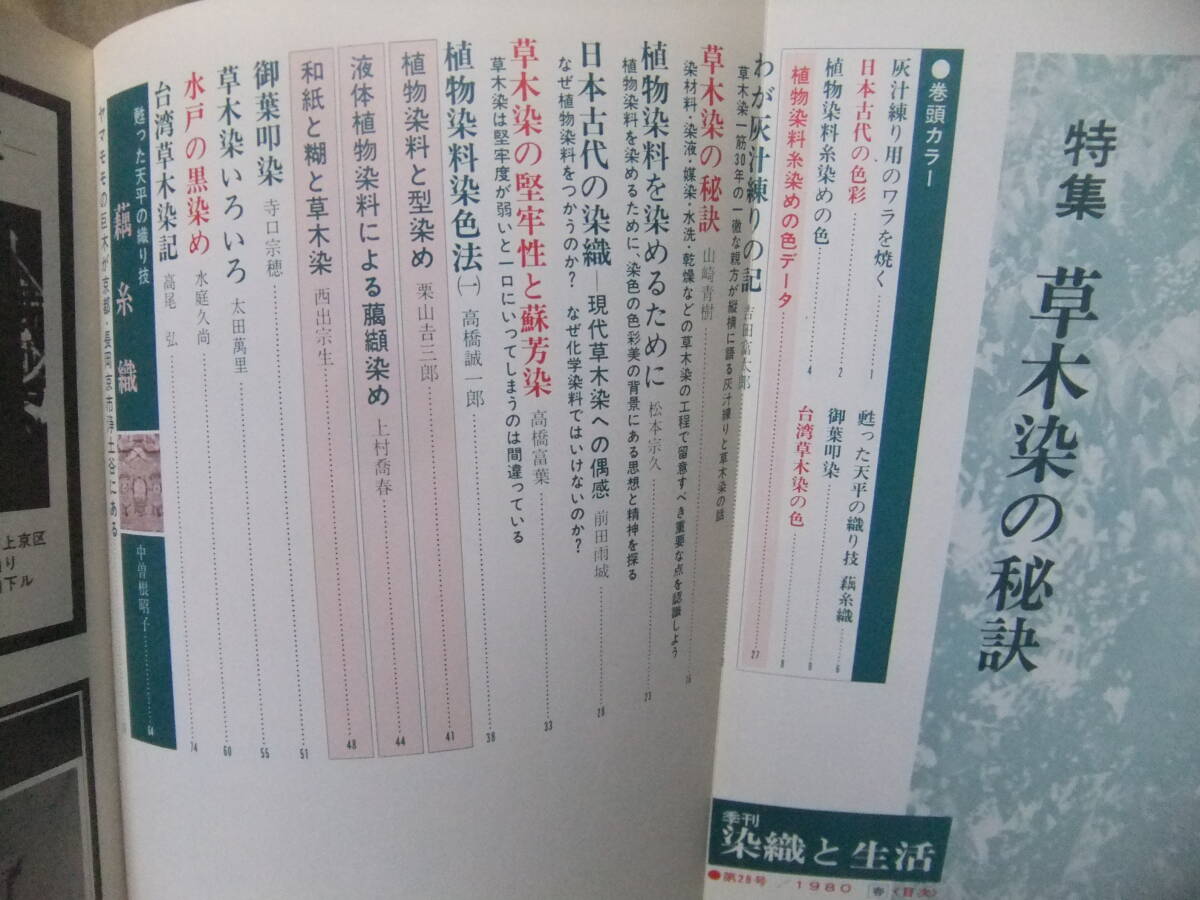 特集 草木染の秘訣
●巻頭カラー
灰汁練り用のワラを焼く 1
日本古代の色彩
植物染料糸染めの色 2
植物染料糸染めの色データ 4
甦った天平の織り技 藕糸織 6
御葉叩染 8
台湾草木染の色 8
27
わが灰汁練りの記 吉田富太郎
草木染一筋30年の一徹な親方が縦横に語る灰汁練りと草木染の話
草木染の秘訣 山崎青樹
染材料・染液・媒染・水洗・乾燥などの草木染の工程で留意すべき重要な点を認識しよう
植物染料を染めるために 松本宗久 23
植物染料を染めるために、染色の色彩美の背景にある思想と精神を探る
日本古代の染織―現代草木染への偶感 前田雨城 28
なぜ植物染料をつかうのか? なぜ化学染料ではいけないのか?
草木染の堅牢性と蘇芳染 高橋富葉 33
草木染は堅牢度が弱いと一口にいってしまうのは間違っている
植物染料染色法(一) 高橋誠一郎 38
植物染料と型染め 栗山吉三郎 41
液体植物染料による﨟纈染め 上村喬春 44
和紙と糊と草木染 西出宗生 48
御葉叩染 寺口宗穂 51
草木染いろいろ 太田萬里 55
水戸の黒染め 水庭久尚 60
台湾草木染記 高尾 弘 74
甦った天平の織り技
藕糸織 中曽根昭子 64
ヤマモモの巨木が京都・長岡京市浄土谷にある
季刊
染織と生活
●第28号/1980 春〈目次〉
上京区
下ル